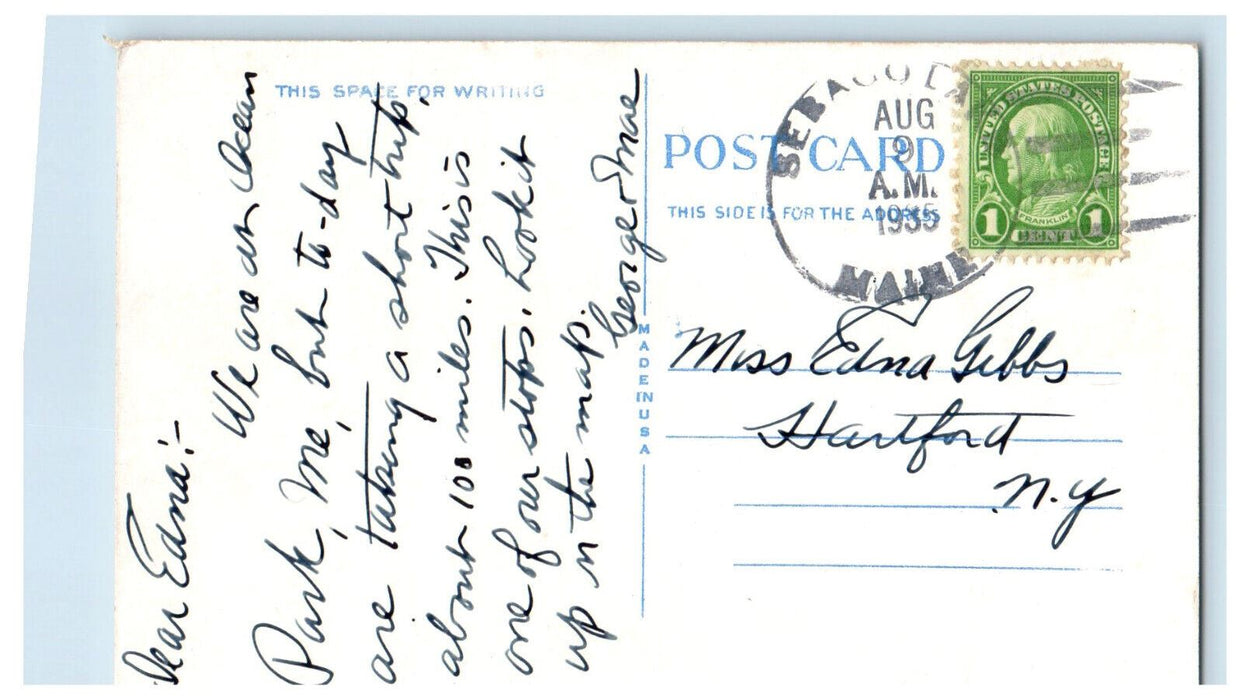 THIS SPACE FOR WRITING
Dear Edna:-
We are in Ocean
Park, Me, but to-day
are taking a short trip,
about 100 miles. This is
one of our stops. Look it
up in the map.
George & Mae
MADE IN USA
POST CARD
THIS SIDE IS FOR THE ADDRESS
SEBAGO LA
AUG
9
A.M.
1935
MAINE
UNITED STATES POSTAGE
FRANKLIN
1 CENT 1
Miss Edna Gibbs
Hartford
N.Y